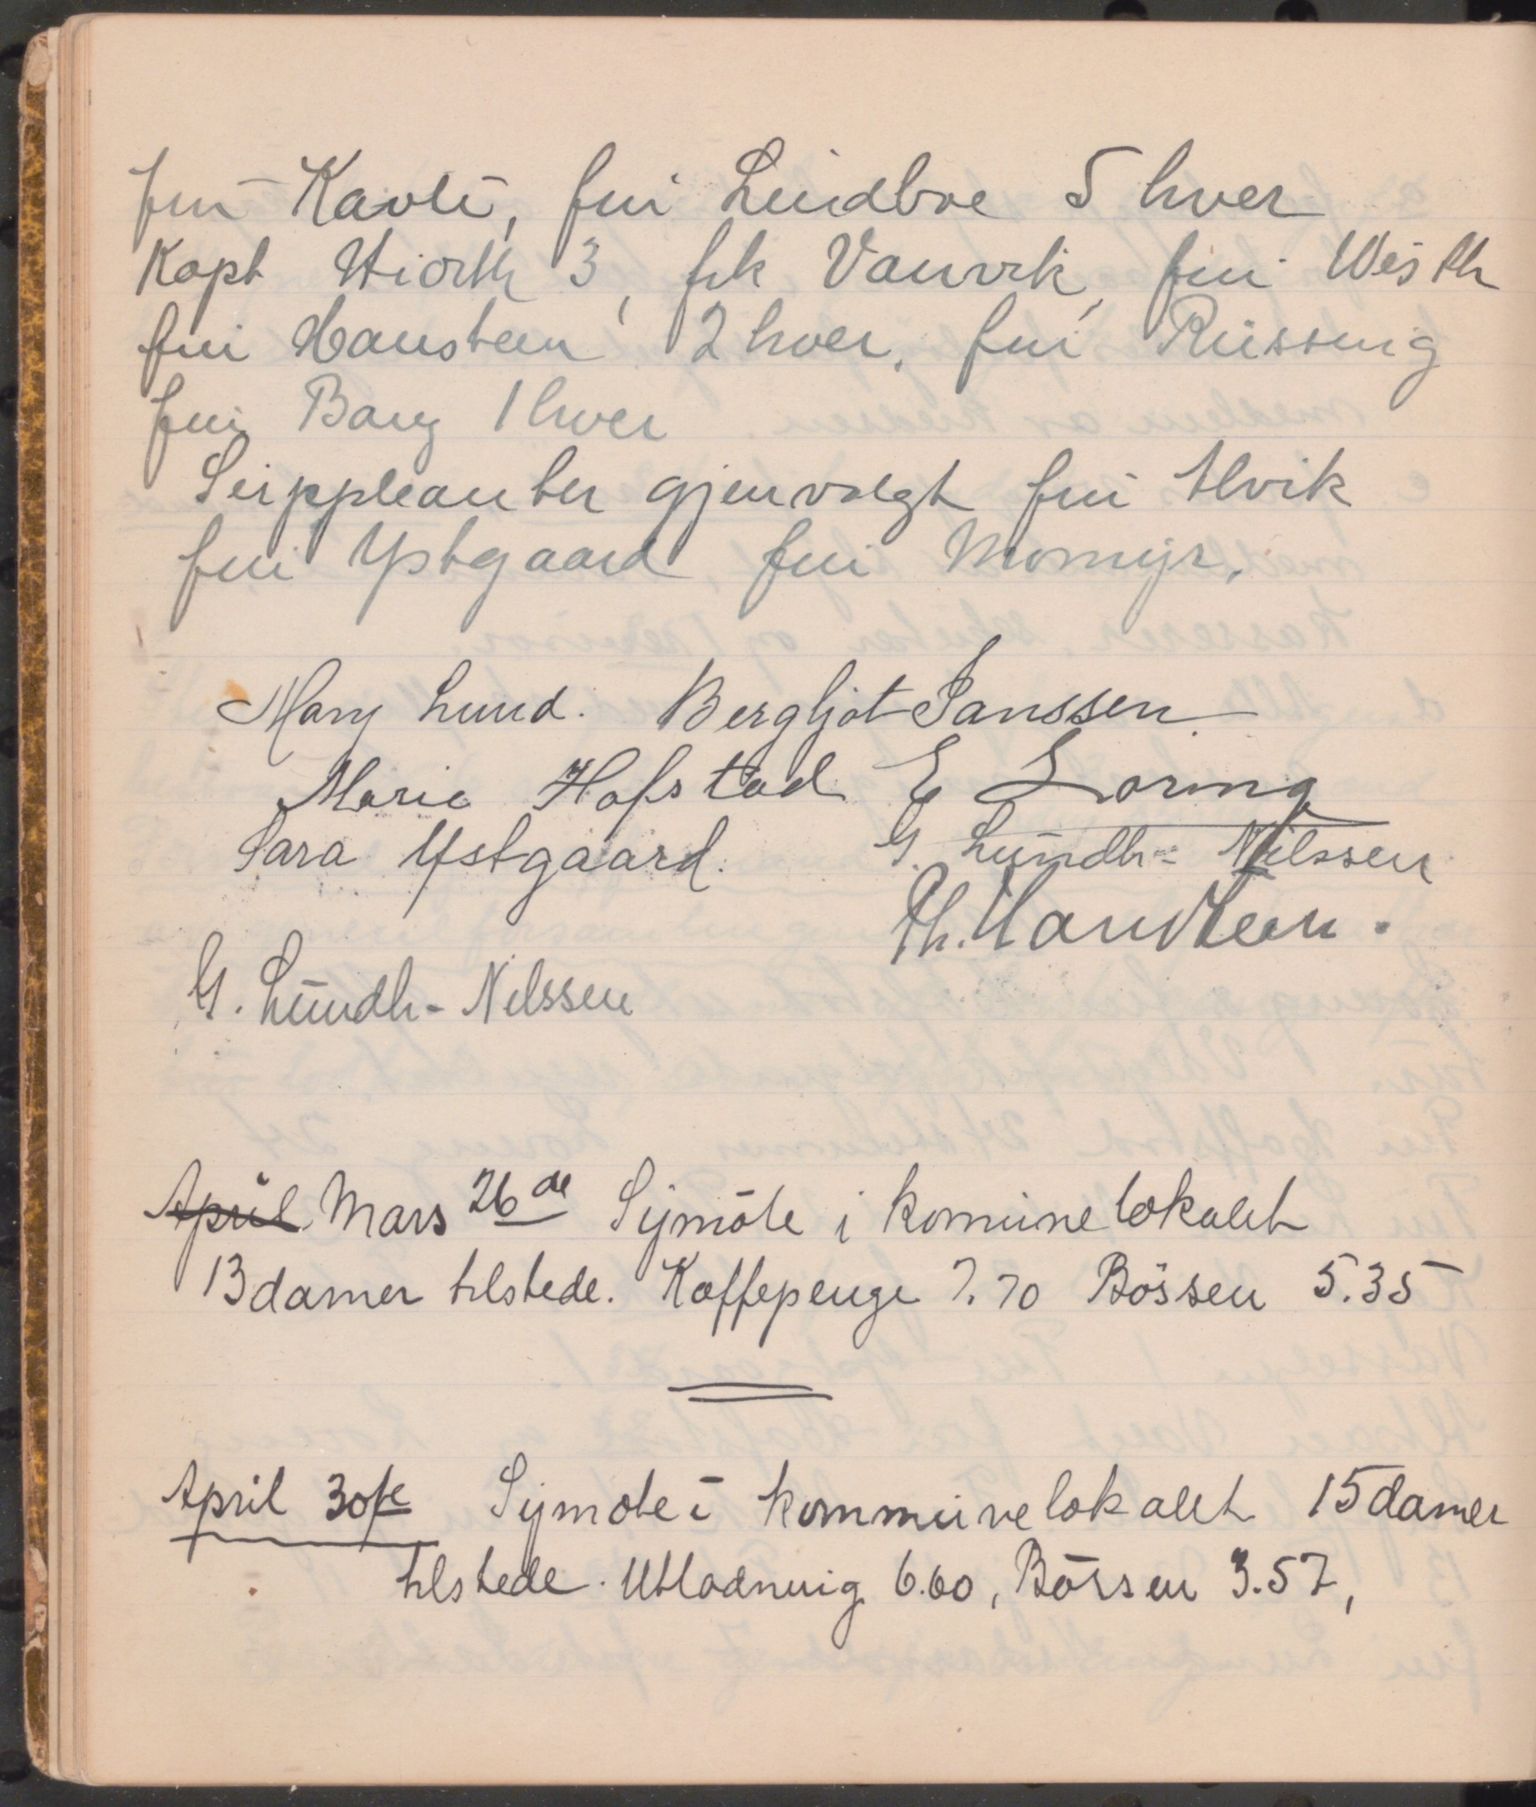 fru Kavli, fru Lundboe 5 hver
Kapt Hiorth 3, frk Vanvik, fru Wisth
fru Hansteen 2 hver, fru Russing
fru Bang 1 hver
Suppleanter gjenvalgt fru Alvik
fru Ystgaard fru Momyr.
Mary Lund. Bergljot Janssen
Marie Hofstad E Loring
Sara Ystgaard. G. Lundh-Nilssen
Th. Hansteen.
G. Lundh-Nilssen
April Mars 26de Symöte i komunelokalet
13 damer tilstede. Kaffepenge 7.70 Bössen 5.35
April 30te Symöte i kommunelokalet 15 damer
tilstede. Utlodning 6.60, Bössen 3.57,